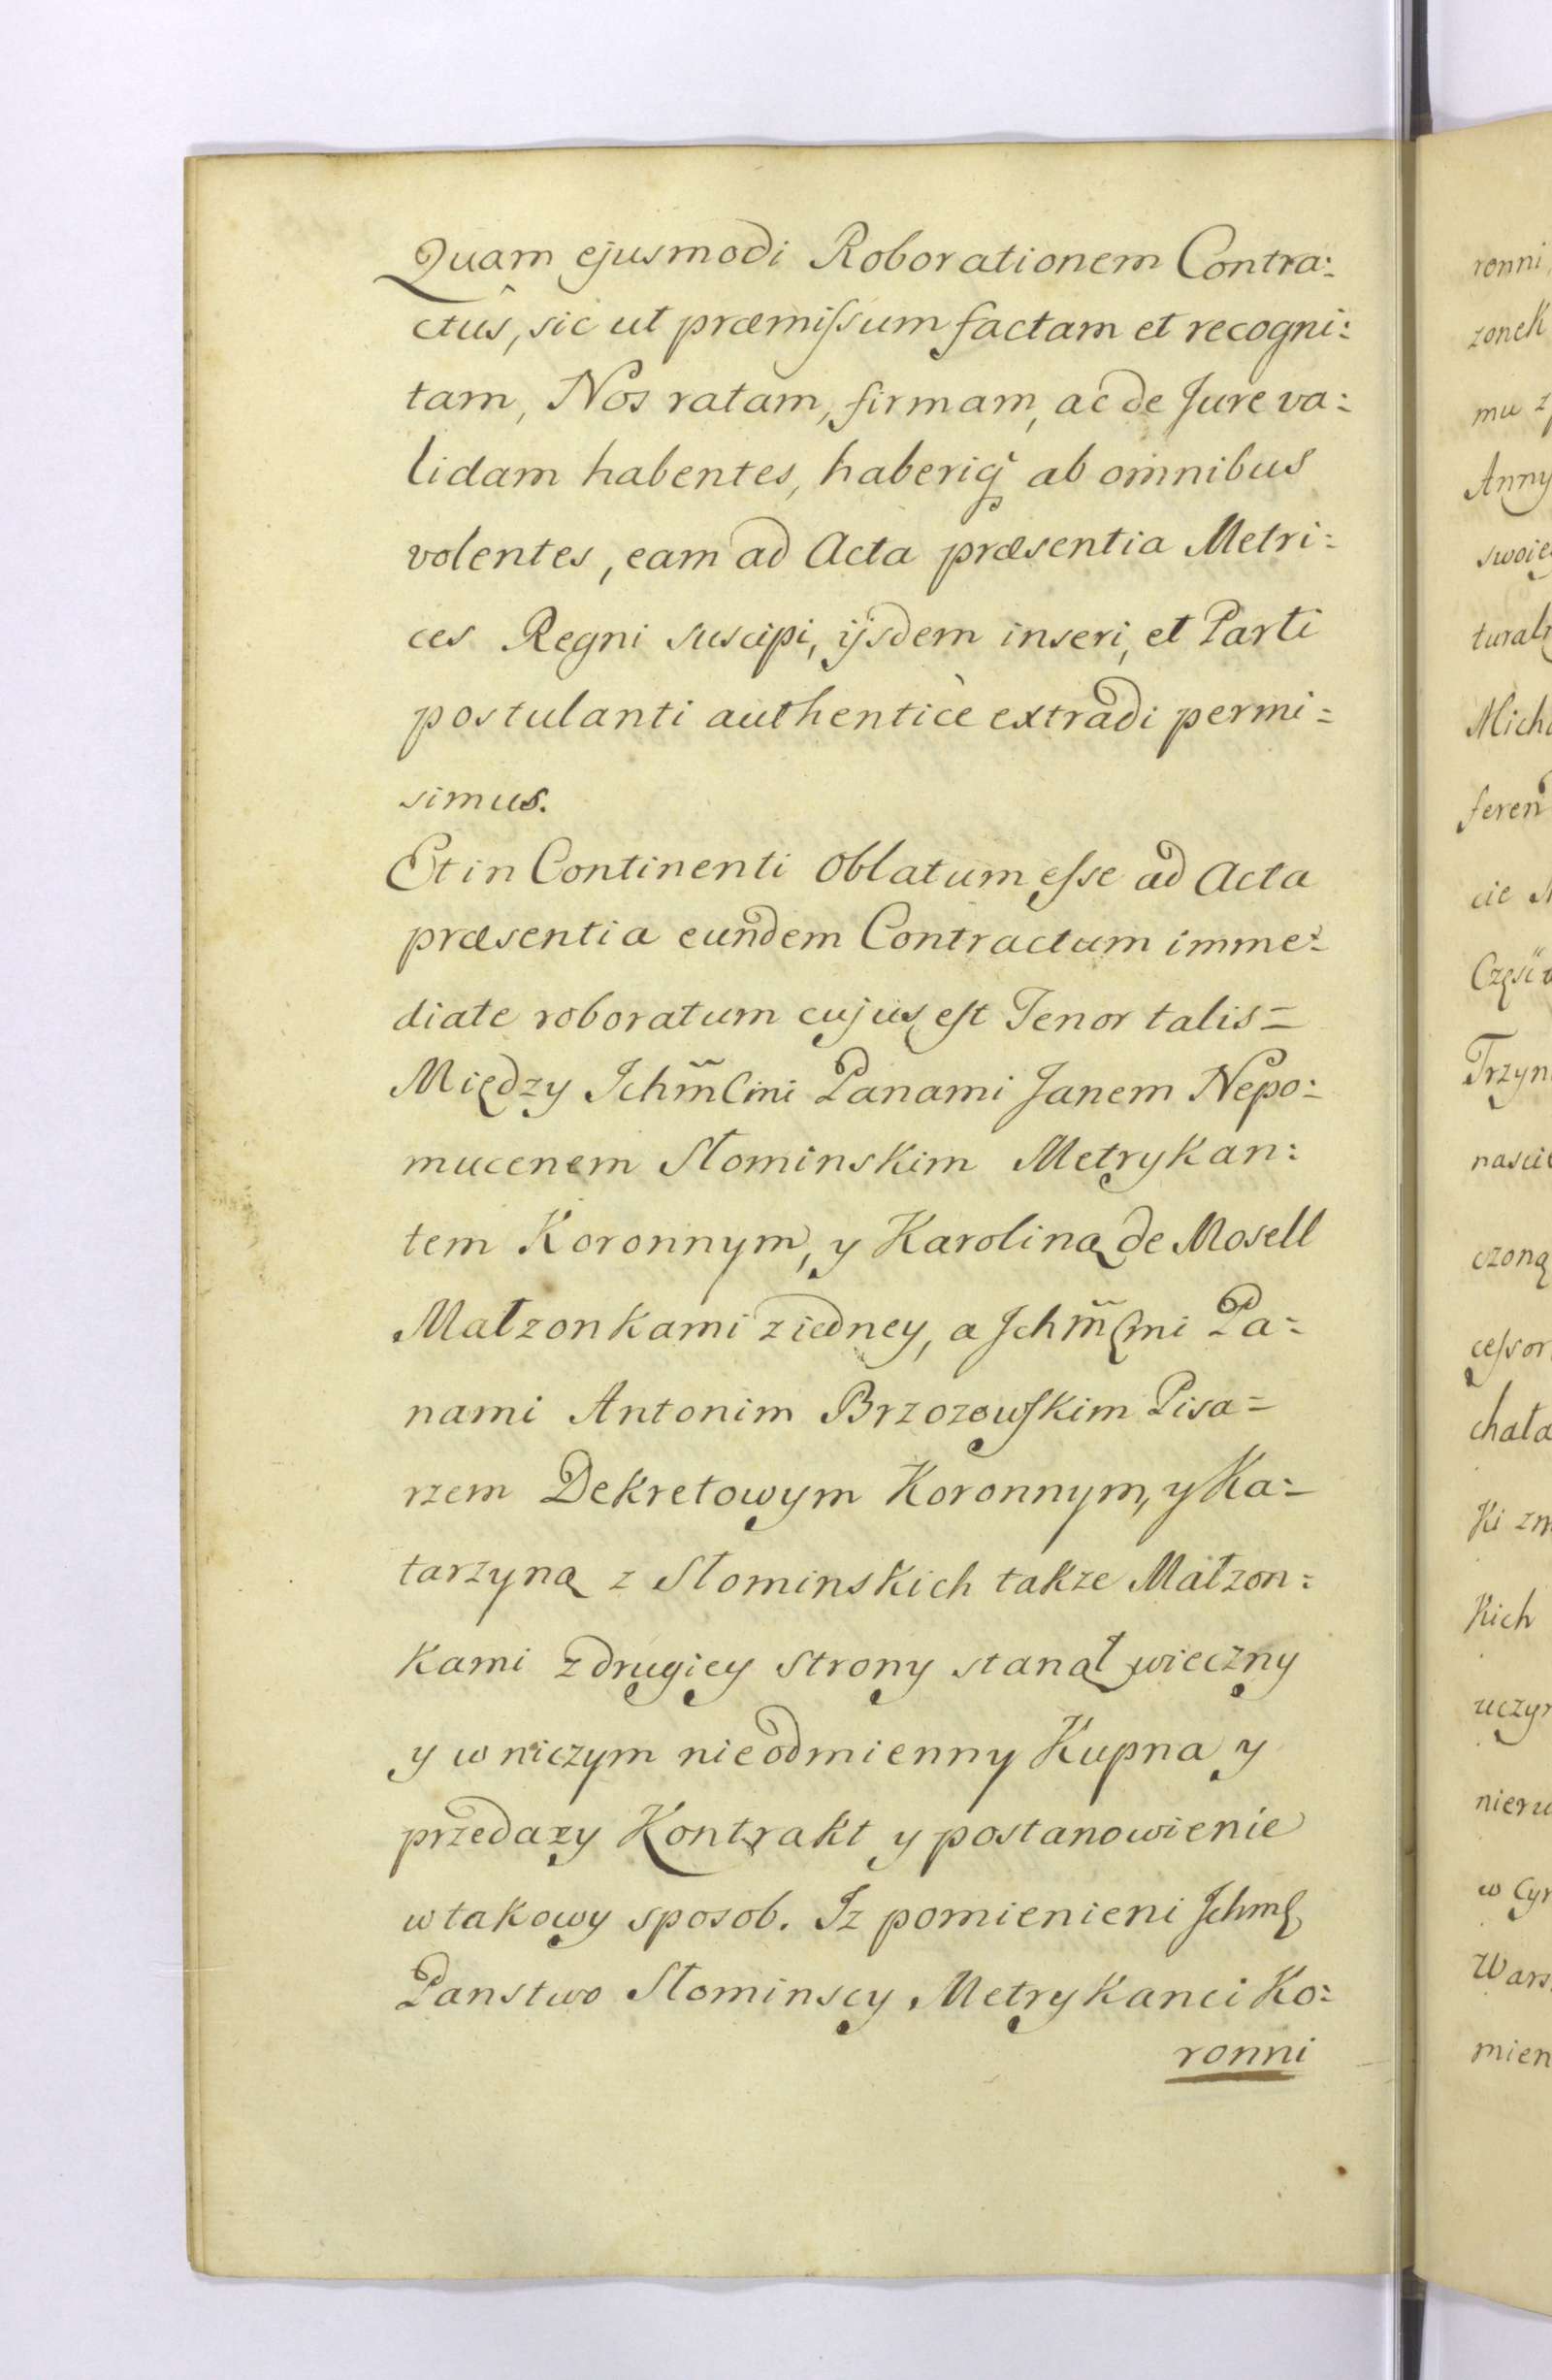 Quam ejusmodi Roborationem Contra:
ctûs, sic ut præmissum factam et recogni:
tam, Nos ratam, firmam, ac de Jure va:
lidam habentes, haberiq̃ ab omnibus
volentes, eam ad Acta præsentia Metri:
ces Regni suscipi, ijsdem inseri, et Parti
postulanti authenticè extradi permi=
simus.
Et in Continenti Oblatum esse ad Acta
præsentia eundem Contractum imme:
diate roboratum cujus est Tenor talis=
Między Ichm̃Cmi Panami Janem Nepo:
mucenem Słominskim Metrykan:
tem Koronnym, y Karoliną de Mosell
Małzonkami z iedney, a Jchm̃Cmi Pa=
nami Antonim Brzozowskim Pisa=
rzem Dekretowym Koronnym, y Ka=
tarzyną z Słominskich takze Małzon:
kami z drugiey strony stanął wieczny
y w niczym nieodmienny Kupna y
przedazy Kontrakt y postanowienie
w takowy sposob. Iz pomienieni JchmC
Panstwo Słominscy Metrykanci Ko:
ronni
ronni,
zonek
mu
Anny
swoie
turaln
Mich
feren
cie
Części
Trzyn
nascie
czoną
cessor
chała
ki zm
kich
uczyn
nieru
w Cyr
Wars
mien